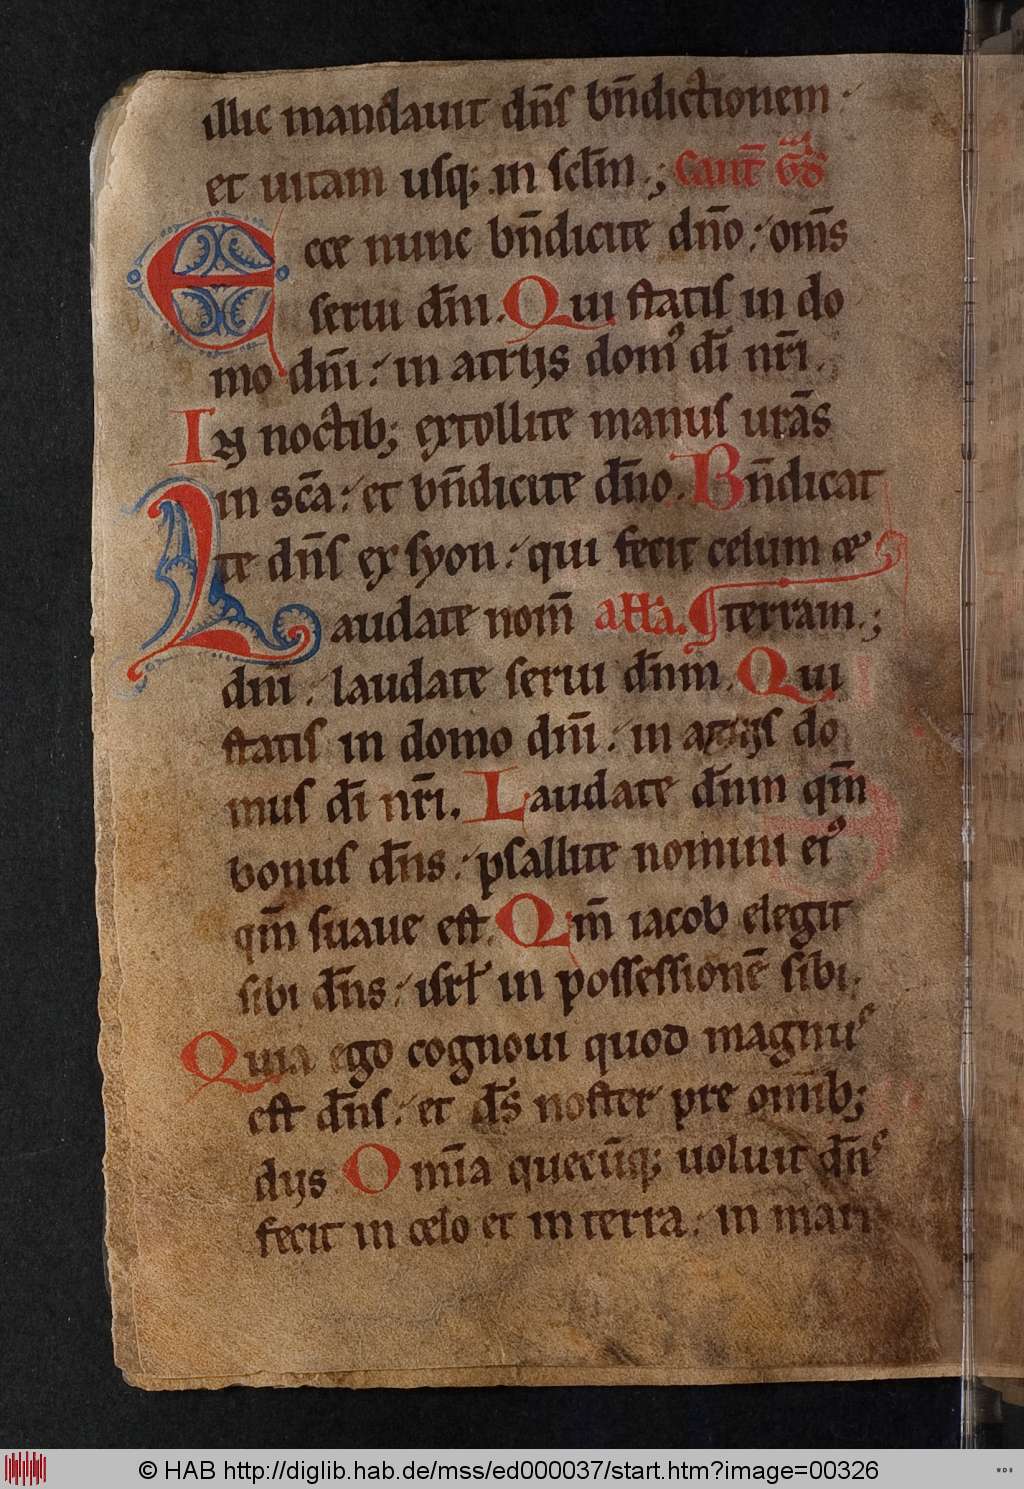 illic mandauit dn̄s bn̄dictionem
et uitam usq; in scl̄m .; Cant̄ g̃d'
Ecce nunc bn̄dicite dn̄o : om̄s
serui dn̄i . Qui statis in do
mo dn̄i : in atrijs domꝰ dī nr̄i .
In noctib; extollite manus ur̄as
in sc̄a : et bn̄dicite dn̄o . Bn̄dicat
te dn̄s ex syon : qui fecit celum ⁊
Laudate nom̄ all'a. ¶ terram .;
dn̄i : laudate serui dn̄m . Qui
statis in domo dn̄i : in atrijs do
mus dī nr̄i . Laudate dn̄m qm̄
bonus dn̄s : psallite nomini eiꝰ
qm̄ suaue est . Qm̄ iacob elegit
sibi dn̄s : isrl' in possessionē sibi .
Quia ego cognoui quod magnus
est dn̄s : et ds̄ noster pre omīb;
dijs . Om̄ia quecūq; uoluit dn̄s
fecit in celo et in terra : in mari
© HAB http://diglib.hab.de/mss/ed000037/start.htm?image=00326